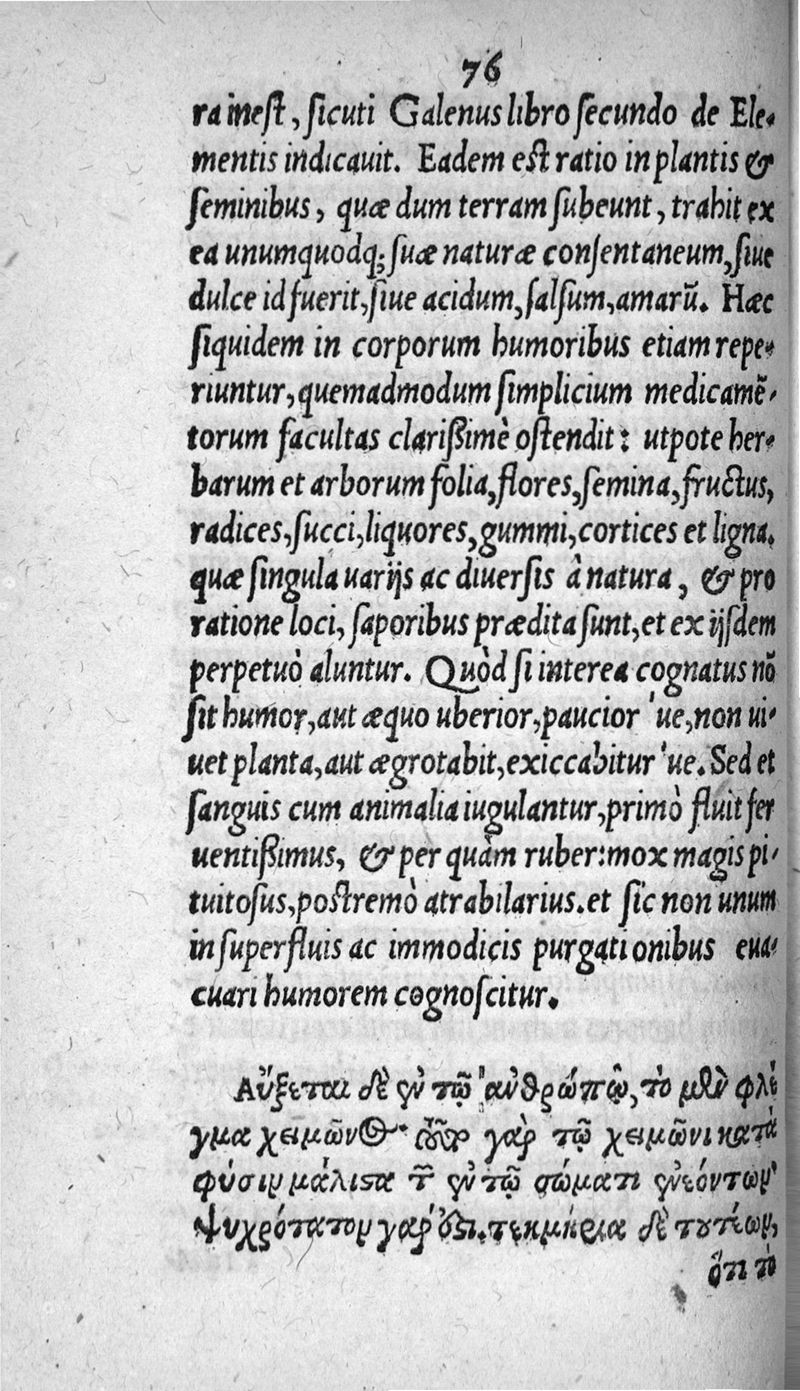 76
ra inest, sicuti Galenus libro secundo de Ele-
mentis indicauit. Eadem est ratio in plantis &
seminibus, quæ dum terram subeunt, trahit ex
ea unumquodq; suæ naturæ consentaneum, siue
dulce id fuerit, siue acidum, salsum, amarũ. Hæc
siquidem in corporum humoribus etiam repe-
riuntur, quemadmodum simplicium medicamẽ-
torum facultas clarißimè ostendit: utpote her-
barum et arborum folia, flores, semina, fructus,
radices, succi, liquores, gummi, cortices et ligna.
quæ singula uarijs ac diuersis à natura, & pro
ratione loci, saporibus prædita sunt, et ex ijsdem
perpetuò aluntur. Quòd si interea cognatus nõ
sit humor, aut æquo uberior, paucior 'ue, non ui-
uet planta, aut ægrotabit, exiccabitur 'ue. Sed et
sanguis cum animalia iugulantur, primò fluit fer
uentißimus, & per quàm ruber: mox magis pi-
tuitosus, postremò atrabilarius. et sic non unum
in superfluis ac immodicis purgationibus eua-
cuari humorem cognoscitur.
Αὔξεται δὲ ἐν τῷ ἀνθρώπῳ, τὸ μὲν φλέ
γμα χειμῶνος· τοῦτο γὰρ τῷ χειμῶνι κατὰ
φύσιν μάλιστα τῶν ἐν τῷ σώματι ἐνεόντων·
Ψυχρότατον γάρ ἐστι. τεκμήρια δὲ τουτέων,
ὅτι τὸ